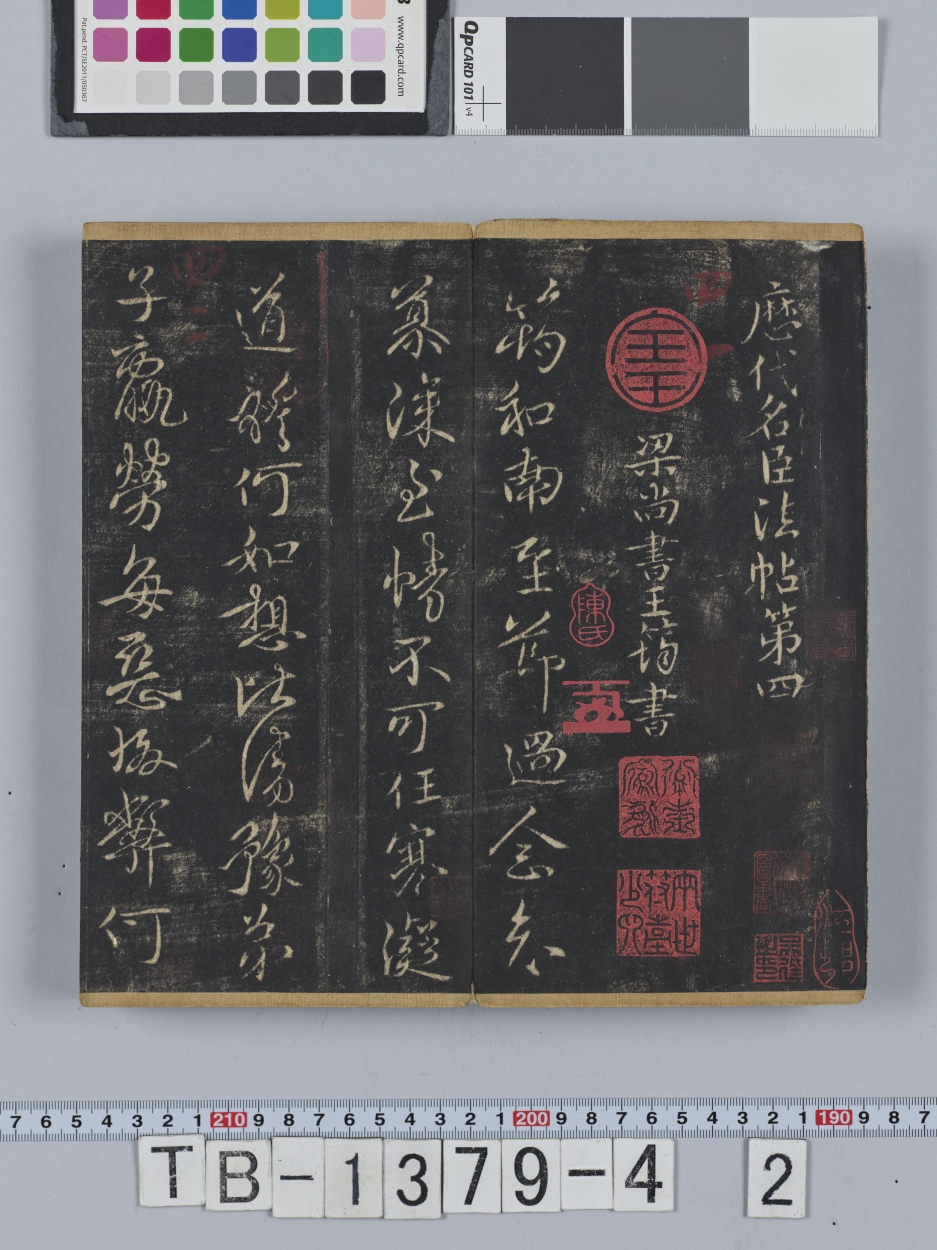 www.qpcard.com
Pat.pend. PCT/SE2011/050367
QPCARD 101 v4
歷代名臣法帖第四
梁尚書王筠書
筠和南至節過念、
慕深至情不可任寒凝
道體何如想比清豫弟
子羸勞每惡故弊何
陳氏
五
7 6 5 4 3 2 1 210 9 8 7 6 5 4 3 2 1 200 9 8 7 6 5 4 3 2 1 190 9 8 7
TB-1379-4 2